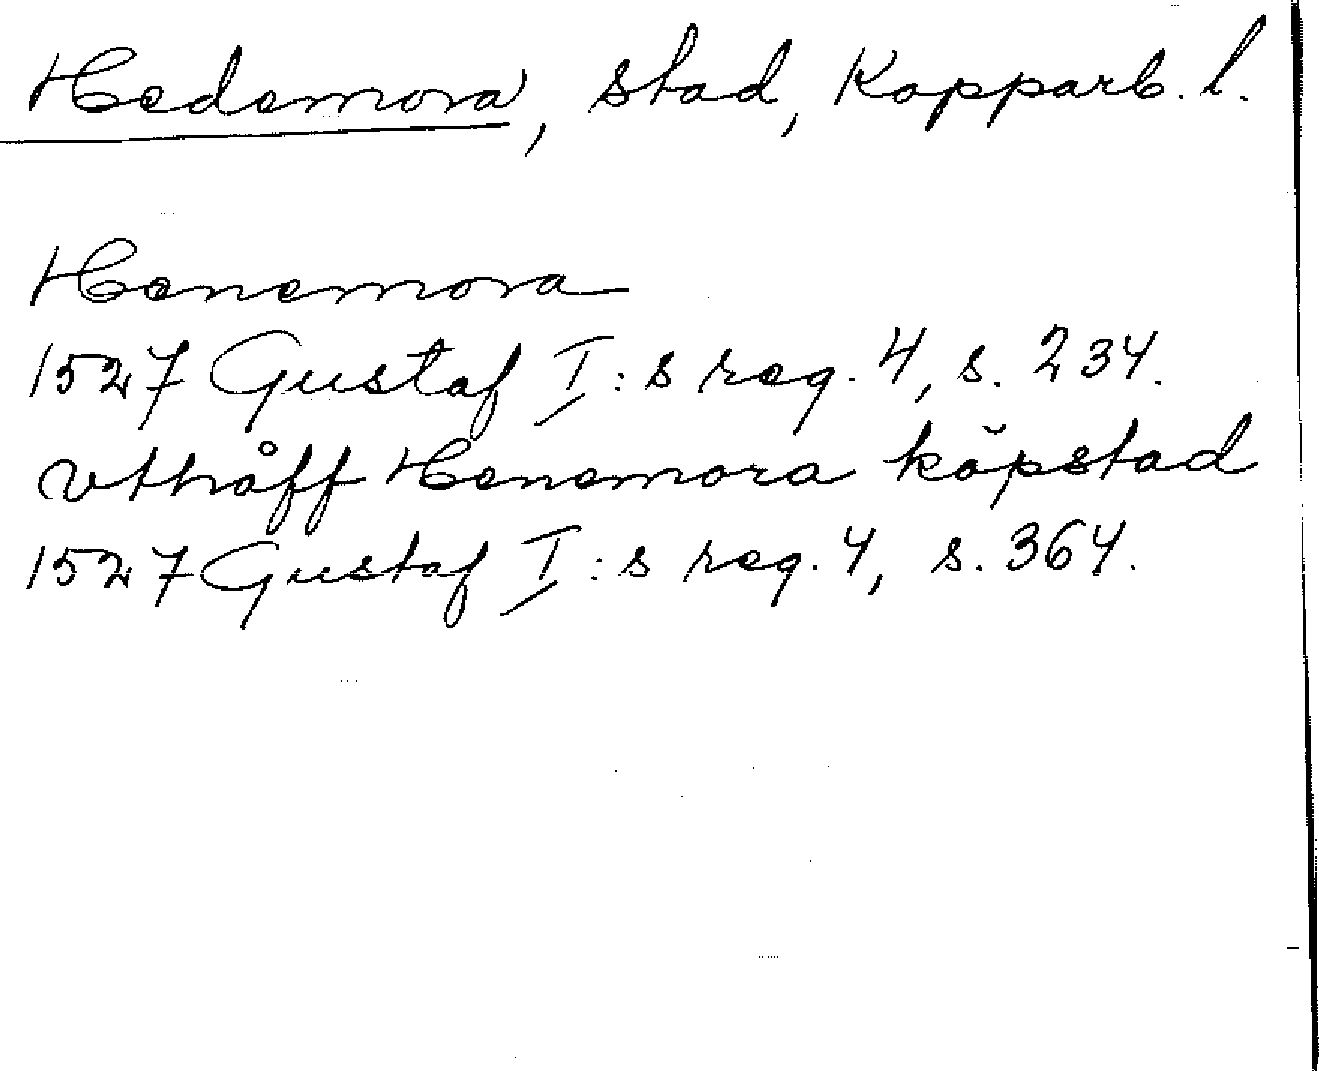 Hedemora, stad, Kopparb. l.
Henemora
1527 Gustaf I:s reg. 4, s. 234.
vthåff Henemora köpstad
1527 Gustaf I:s reg. 4, s. 364.